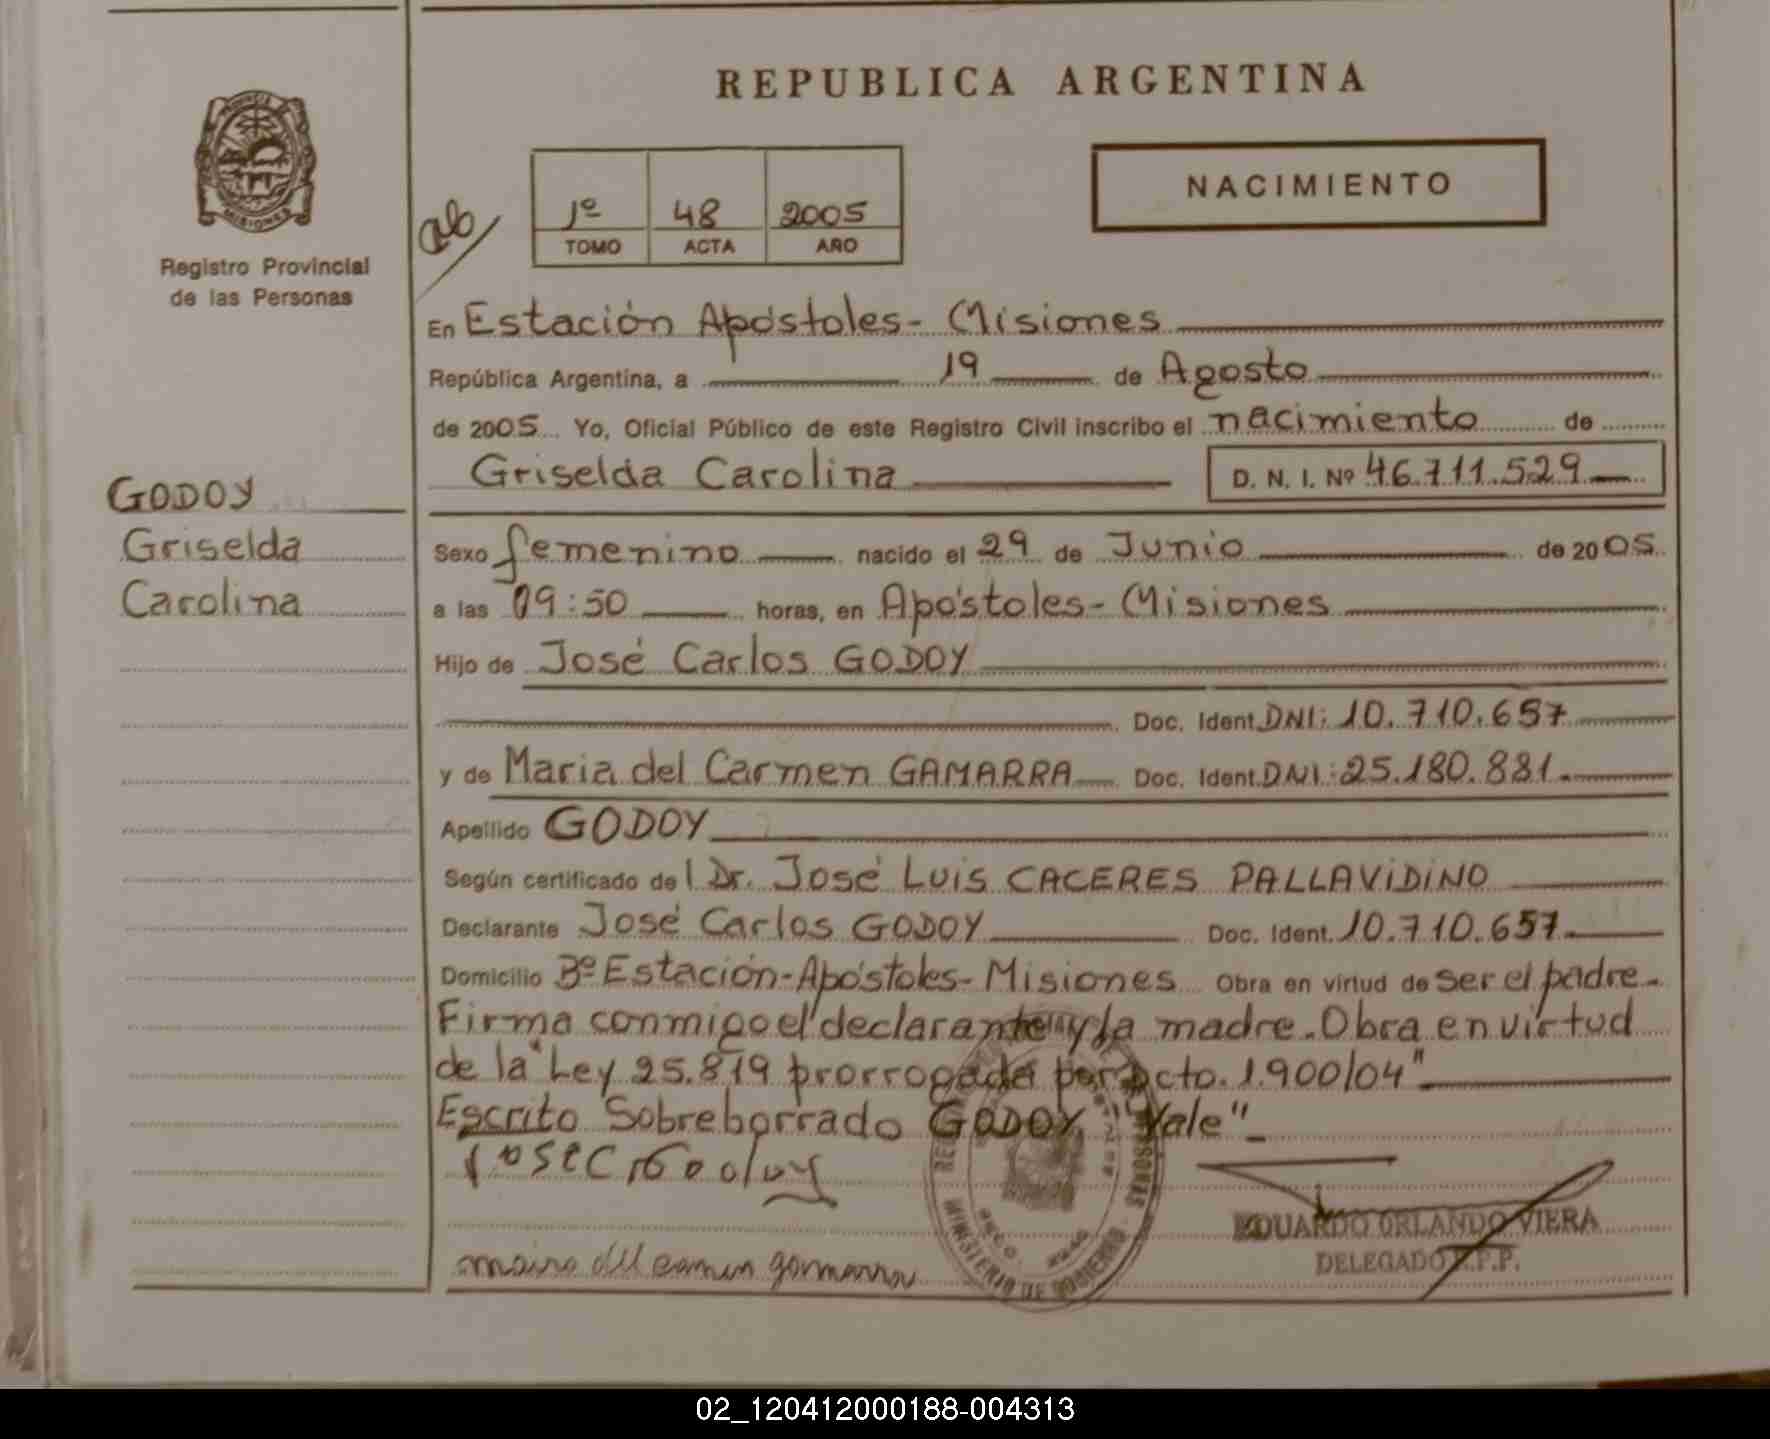 REPUBLICA ARGENTINA
NACIMIENTO
PROVINCIA
MISIONES
Registro Provincial
de las Personas
ab
1º 48 2005
TOMO ACTA AÑO
En Estación Apóstoles - Misiones
República Argentina, a 19 de Agosto
de 2005 Yo, Oficial Público de este Registro Civil inscribo el nacimiento de
Griselda Carolina D. N. I. Nº 46.711.529
GODOY
Griselda
Carolina
Sexo femenino nacido el 29 de Junio de 2005
a las 09:50 horas, en Apóstoles - Misiones
Hijo de José Carlos GODOY
Doc. Ident. DNI: 10.710.657
y de Maria del Carmen GAMARRA Doc. Ident. DNI: 25.180.881.
Apellido GODOY
Según certificado del Dr. José Luis CACERES PALLAViDiNO
Declarante José Carlos GODOY Doc. Ident. 10.710.657.
Domicilio Bº Estación - Apóstoles - Misiones Obra en virtud de ser el padre.-
Firma conmigo el declarante y la madre. Obra en virtud
de la "Ley 25.819 prorrogada por Dcto. 1.900/04"
Escrito Sobreborrado GODOY "Vale"-
MINISTERIO DE GOBIERNO
EDUARDO ORLANDO VIERA
DELEGADO R.P.P.
02_120412000188-004313